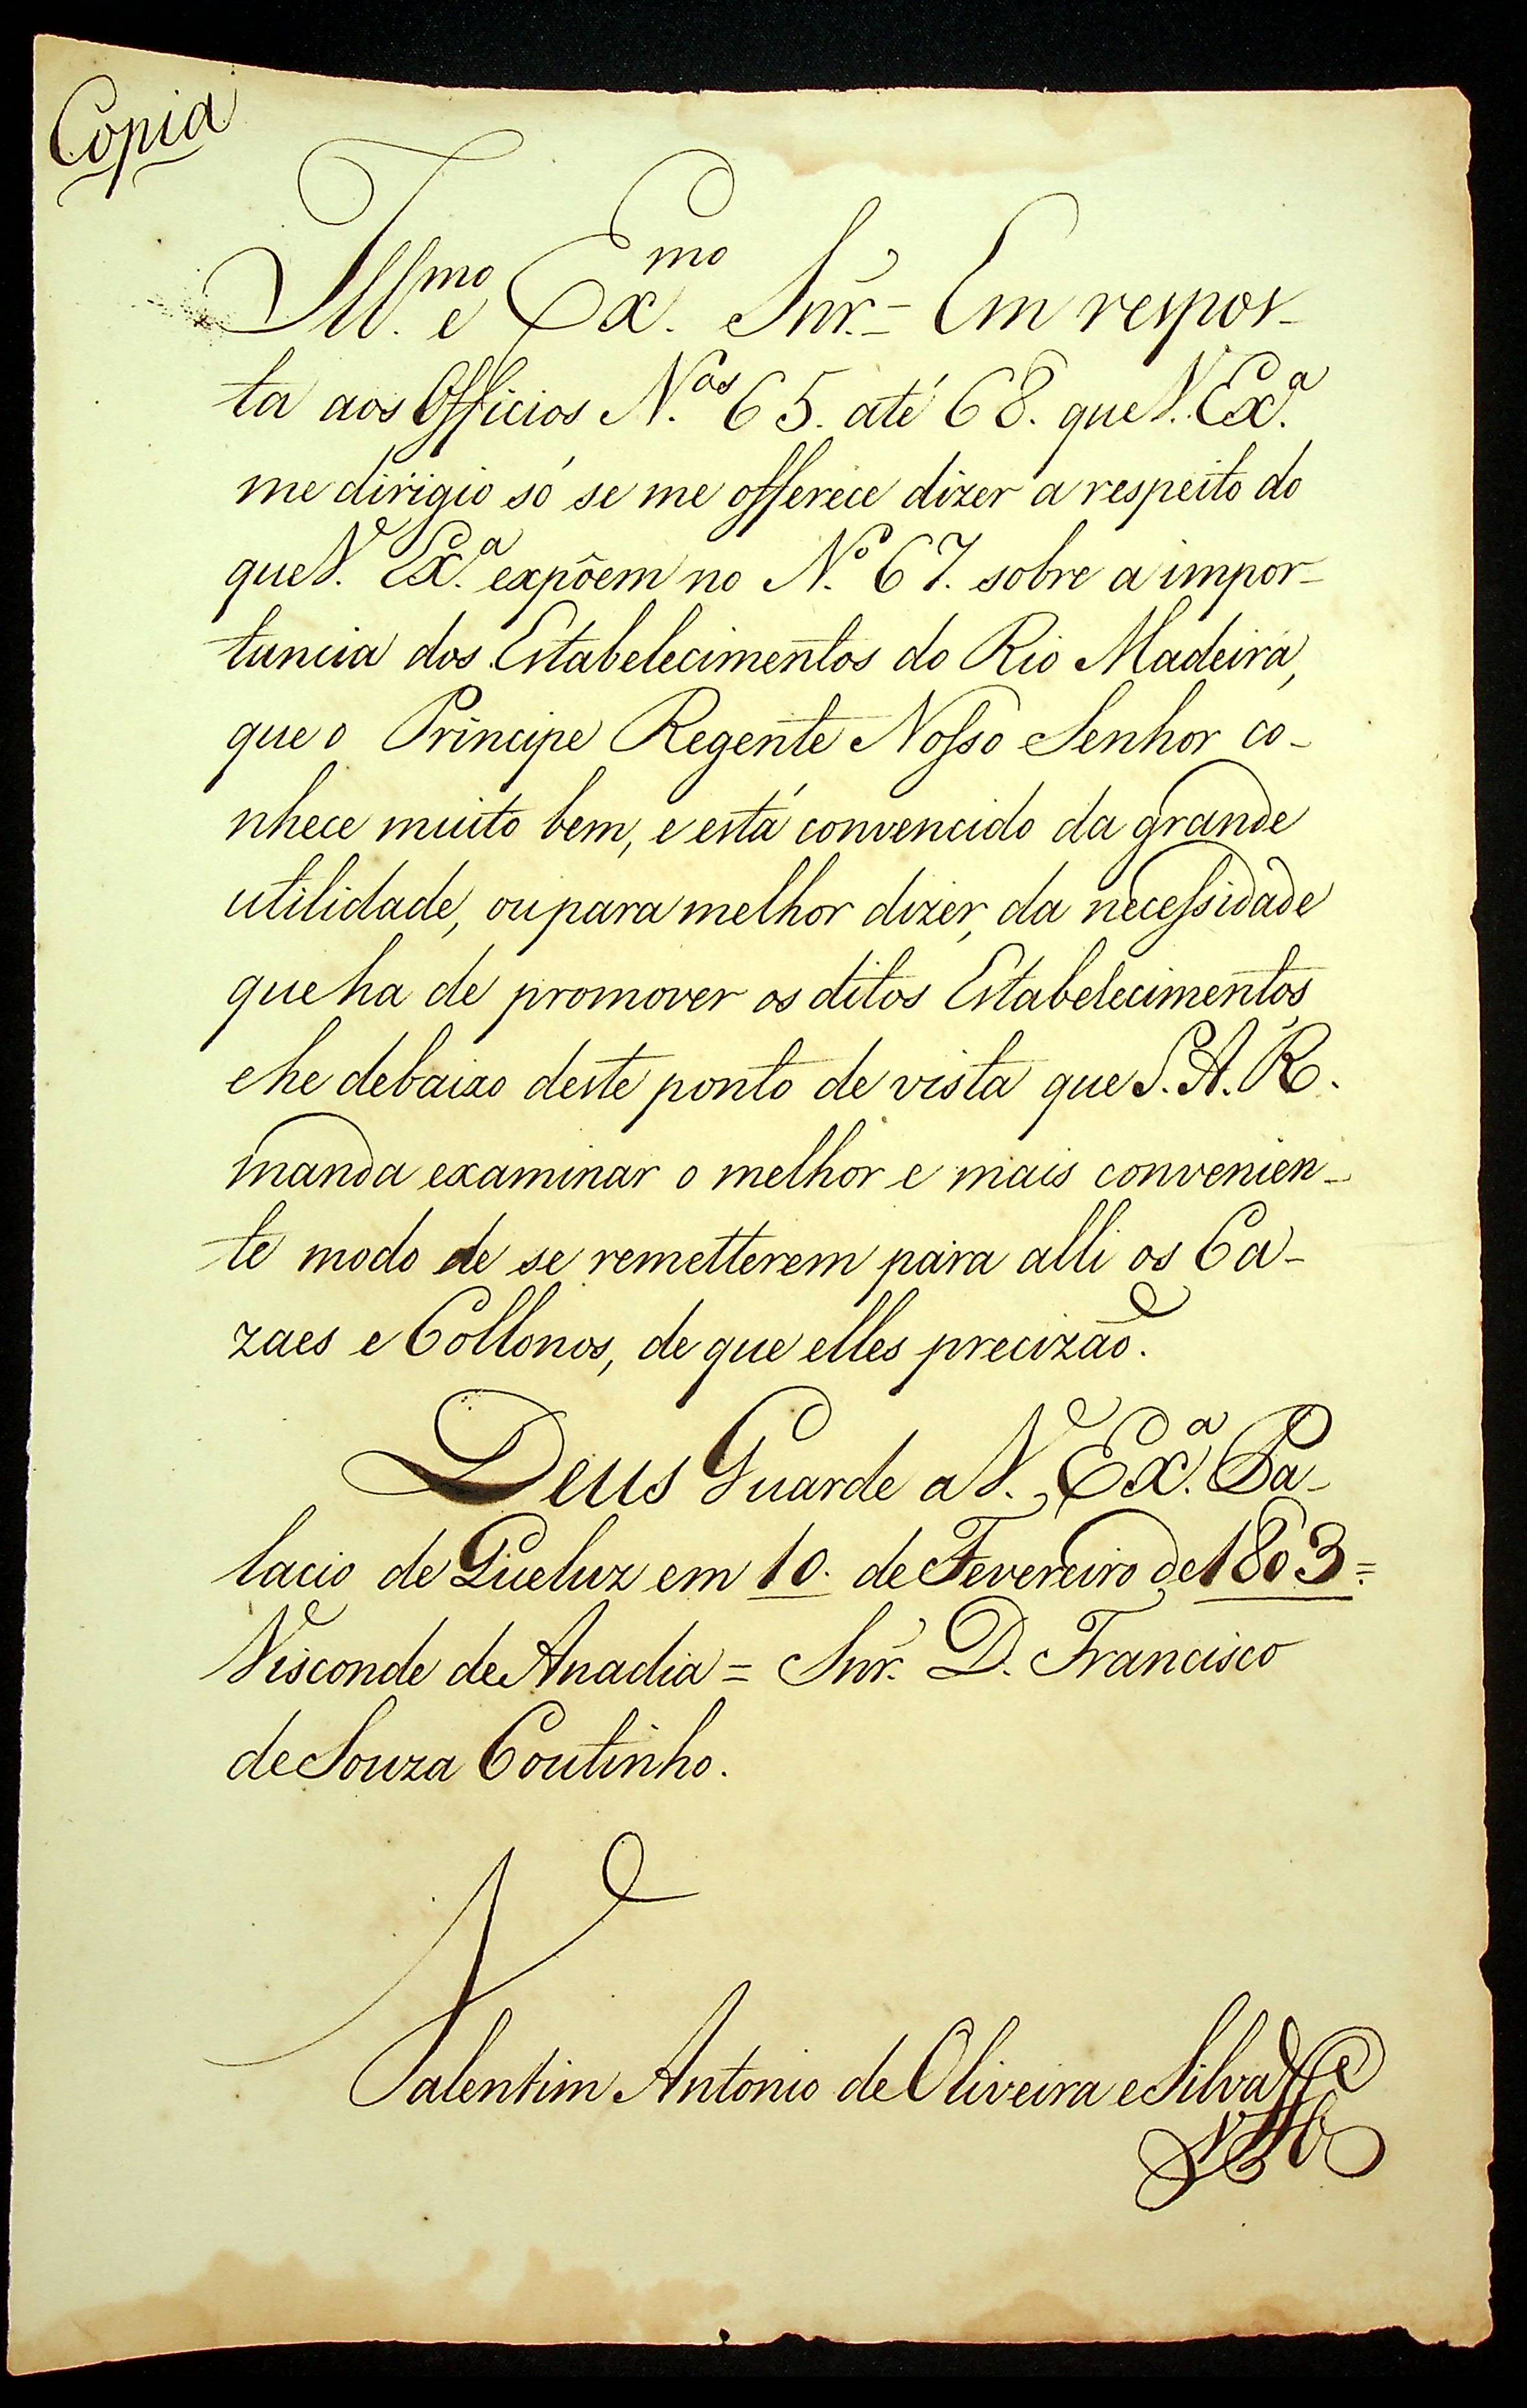 Copia
Ill.mo e Ex.mo Snr. = Em respos-
ta aos Officios N.os 65. até 68. que V. Ex.a
me dirigio só se me offerece dizer a respeito do
que V. Ex.a expõem no N.o 67. sobre a impor-
tancia dos Estabelecimentos do Rio Madeira,
que o Principe Regente Nosso Senhor co-
nhece muito bem, e está convencido da grande
utilidade, ou para melhor dizer, da necessidade
que ha de promover os ditos Estabelecimentos,
e he debaixo deste ponto de vista que S. A. R.
manda examinar o melhor e mais convenien-
te modo de se remetterem para alli os Ca-
zaes e Collonos, de que elles precizão.
Deus Guarde a V. Ex.a Pa-
lacio de Queluz em 10. de Fevereiro de 1803 =
Visconde de Anadia = Snr. D. Francisco
de Souza Coutinho.
Valentim Antonio de Oliveira e Silva